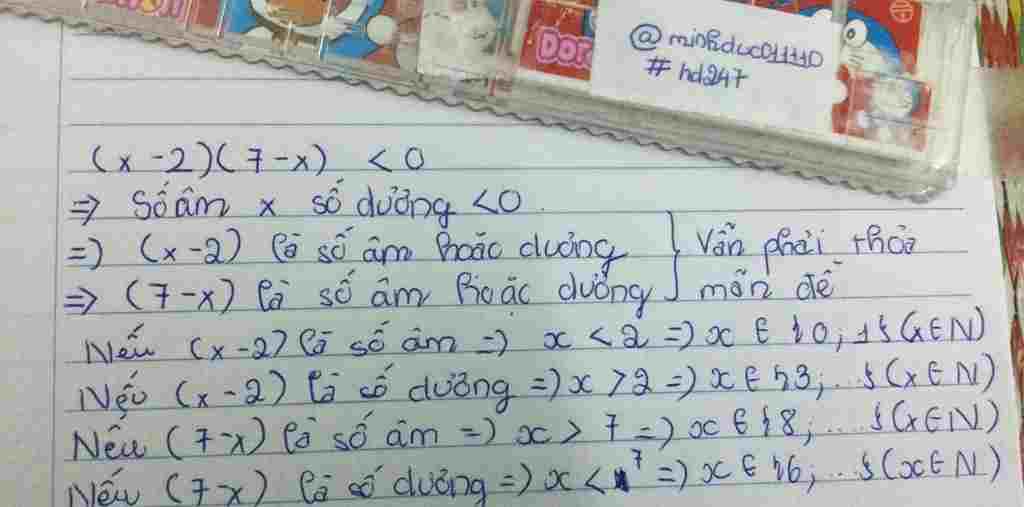 DORA
@minhduc011110
# hd247
(x - 2)(7 - x) < 0
=> Số âm x số dương < 0.
=> (x - 2) là số âm hoặc dương } Vẫn phải thỏa
=> (7 - x) là số âm hoặc dương } mãn đề
Nếu (x - 2) là số âm => x < 2 => x ∈ {0; 1} (x ∈ N)
Nếu (x - 2) là số dương => x > 2 => x ∈ {3; ...} (x ∈ N)
Nếu (7 - x) là số âm => x > 7 => x ∈ {8; ...} (x ∈ N)
Nếu (7 - x) là số dương => x < 7 => x ∈ {6; ...} (x ∈ N)